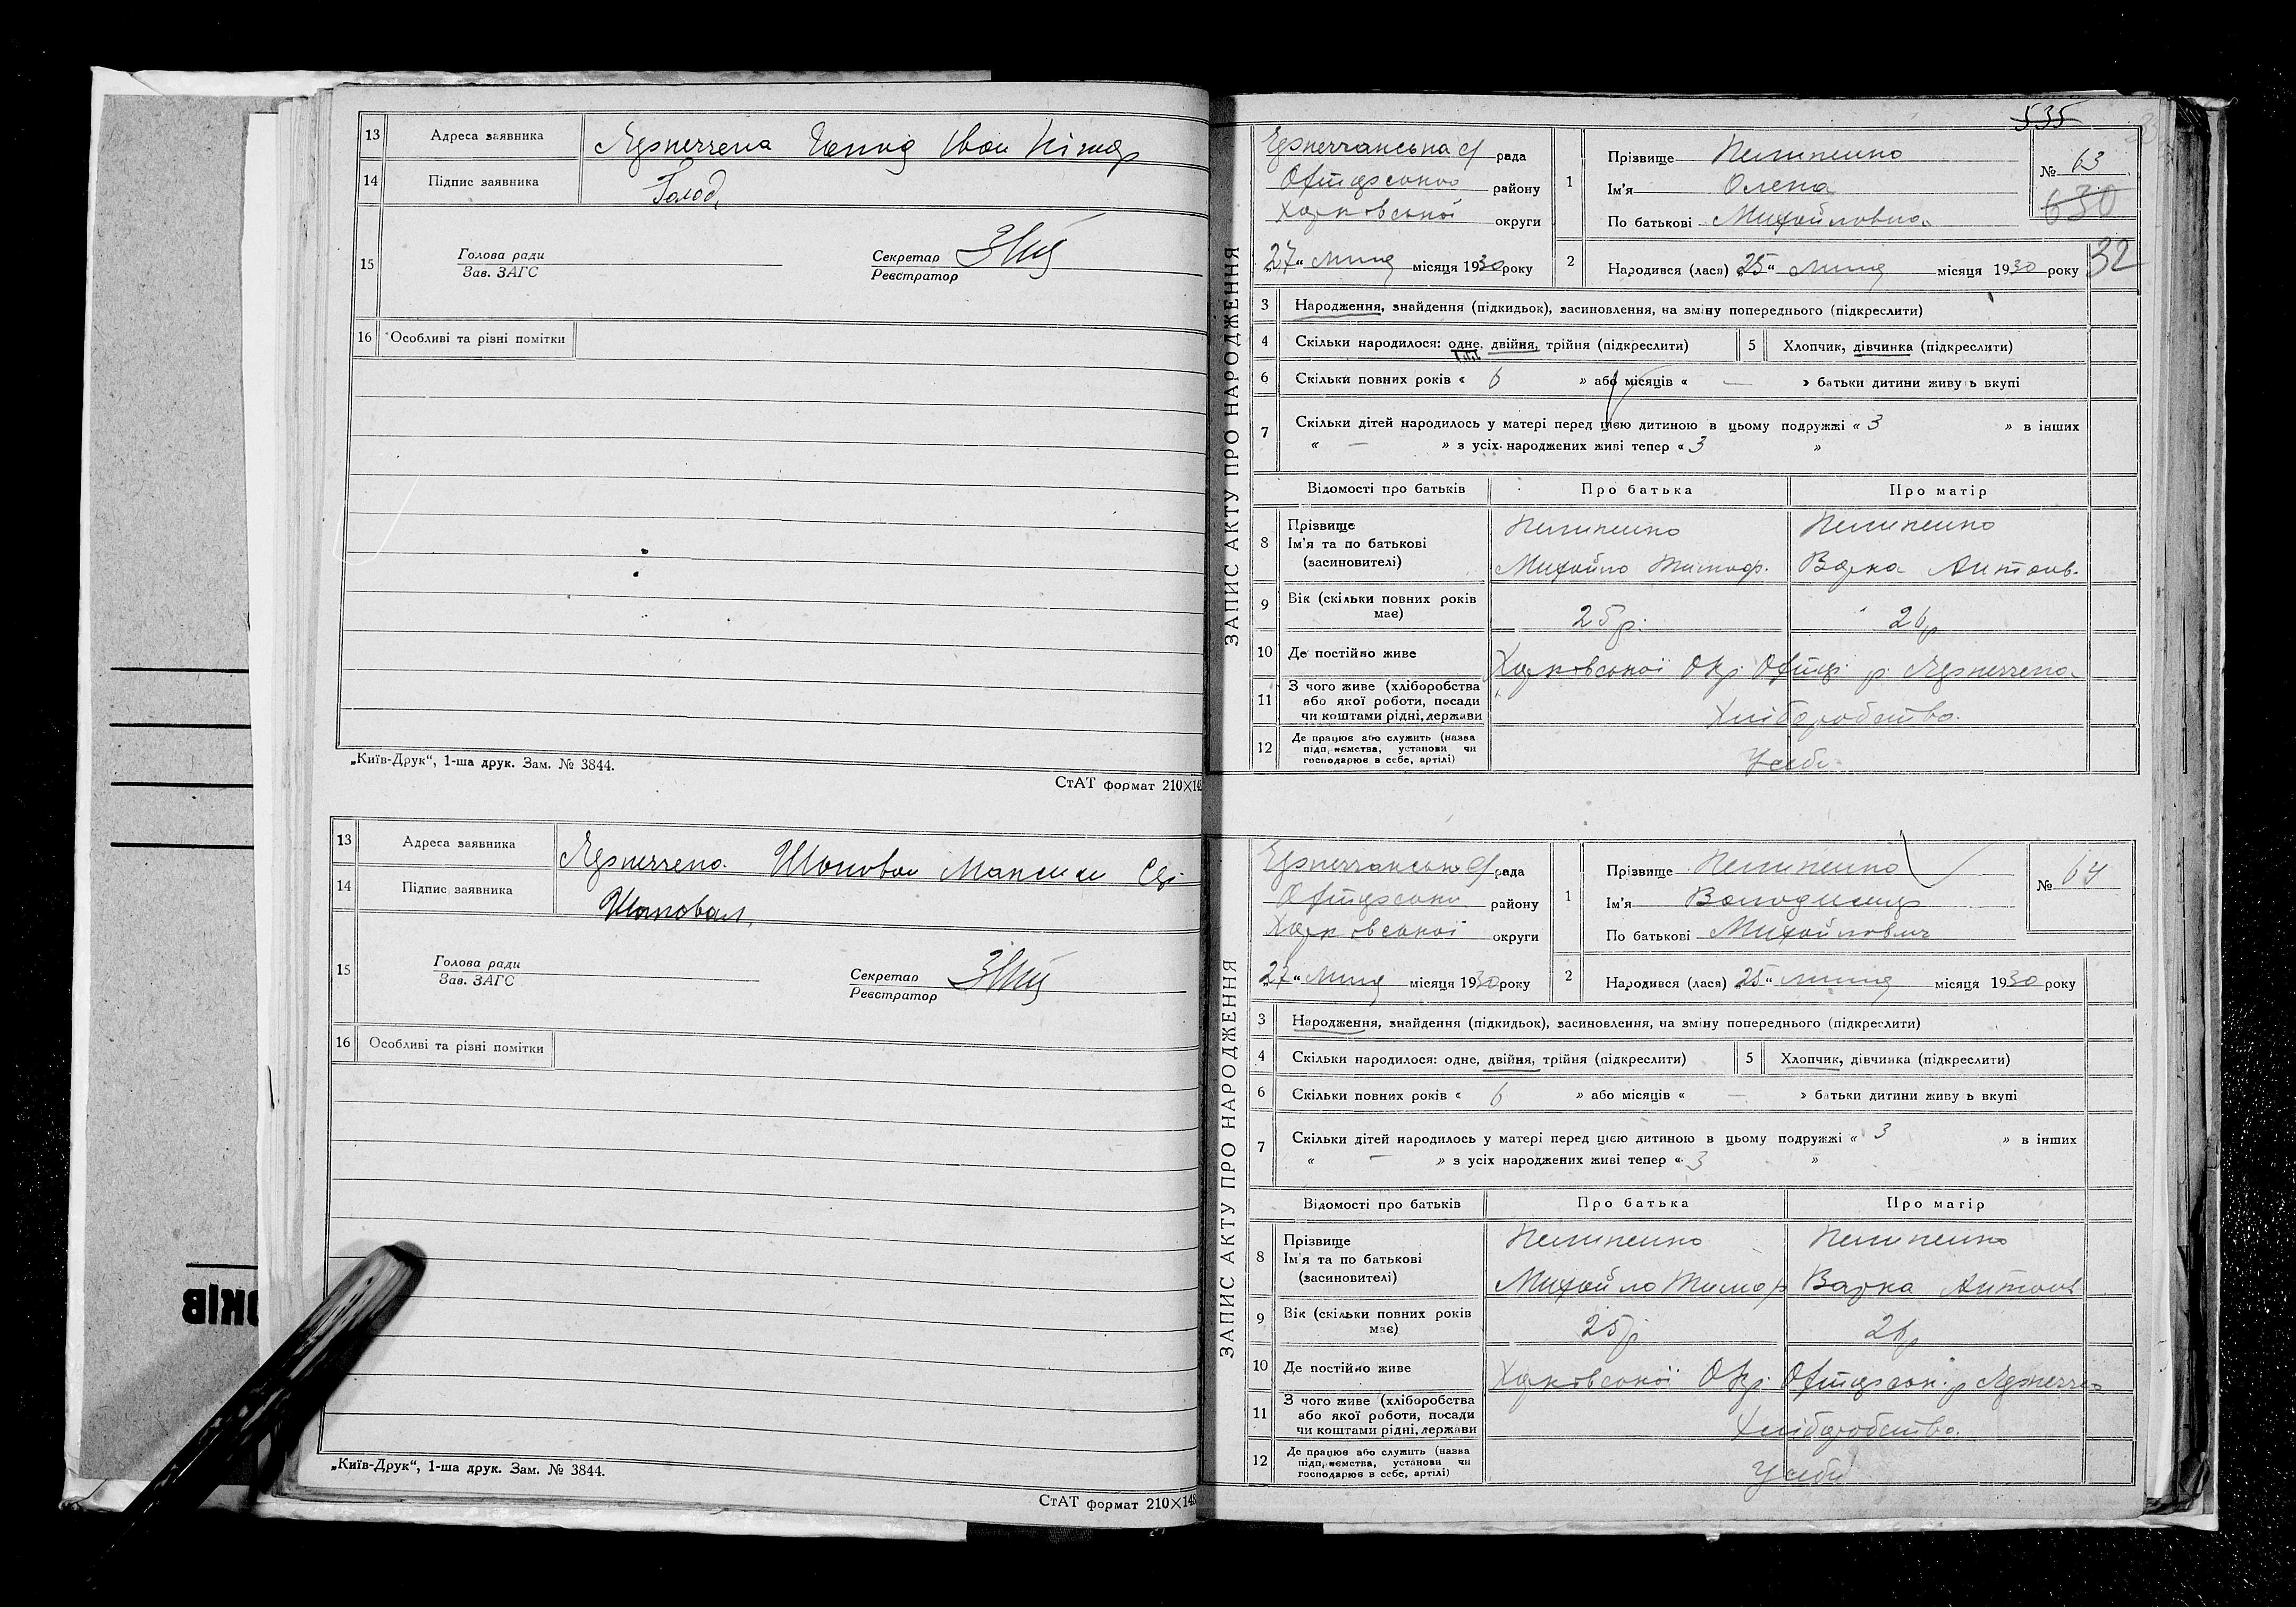 13 Адреса заявника
14 Підпис заявника Голод
15 Голова ради
Зав. ЗАГС
Секретар
Реєстратор
16 Особливі та різні помітки
„Київ-Друк“, 1-ша друк. Зам. № 3844.
СтАТ формат 210×148
13 Адреса заявника Шаповал Максим
14 Підпис заявника Шаповал
15 Голова ради
Зав. ЗАГС
Секретар
Реєстратор
16 Особливі та різні помітки
„Київ-Друк“, 1-ша друк. Зам. № 3844.
СтАТ формат 210×148
ОКІВ
535
ЗАПИС АКТУ ПРО НАРОДЖЕННЯ
рада
району
Харківської округи
27 липня місяця 1930 року
1 Прізвище Пилипенко
Ім'я Олена
По батькові Михайловна
№ 63
630
2 Народився (лася) „25“ липня місяця 1930 року
32
3 Народження, знайдення (підкидьок), засиновлення, на зміну попереднього (підкреслити)
4 Скільки народилося: одне, двійня, трійня (підкреслити)
5 Хлопчик, дівчинка (підкреслити)
6 Скільки повних років « 6 » або місяців « — » батьки дитини живуть вкупі
7 Скільки дітей народилось у матері перед цією дитиною в цьому подружжі « 3 » в інших
« — » з усіх народжених живі тепер « 3 »
Відомості про батьків Про батька Про матір
8 Прізвище Пилипенко Пилипенко
Ім'я та по батькові Михайло Тимоф. Варка Антонв.
(засновителі)
9 Вік (скільки повних років має) 25 р. 26 р
10 Де постійно живе Харковської Окр.
11 З чого живе (хліборобства або якої роботи, посади чи коштами рідні, держави Хліборобство.
12 Де працює або служить (назва підприємства, установи чи господарює в себе, артілі) У себе
ЗАПИС АКТУ ПРО НАРОДЖЕННЯ
рада
району
Харковської округи
27 липня місяця 1930 року
1 Прізвище Пилипенко
Ім'я Володимир
По батькові Михайлович
№ 64
2 Народився (лася) „25“ липня місяця 1930 року
3 Народження, знайдення (підкидьок), засиновлення, на зміну попереднього (підкреслити)
4 Скільки народилося: одне, двійня, трійня (підкреслити)
5 Хлопчик, дівчинка (підкреслити)
6 Скільки повних років « 6 » або місяців « — » батьки дитини живуть вкупі
7 Скільки дітей народилось у матері перед цією дитиною в цьому подружжі « 3 » в інших
« — » з усіх народжених живі тепер « 3 »
Відомості про батьків Про батька Про матір
8 Прізвище Пилипенко Пилипенко
Ім'я та по батькові Михайло Тимоф Варка Антонв
(засиновителі)
9 Вік (скільки повних років має) 25 р 26 р
10 Де постійно живе Харковської Окр.
11 З чого живе (хліборобства або якої роботи, посади чи коштами рідні, держави Хліборобство.
12 Де працює або служить (назва підприємства, установи чи господарює в себе, артілі) У себе